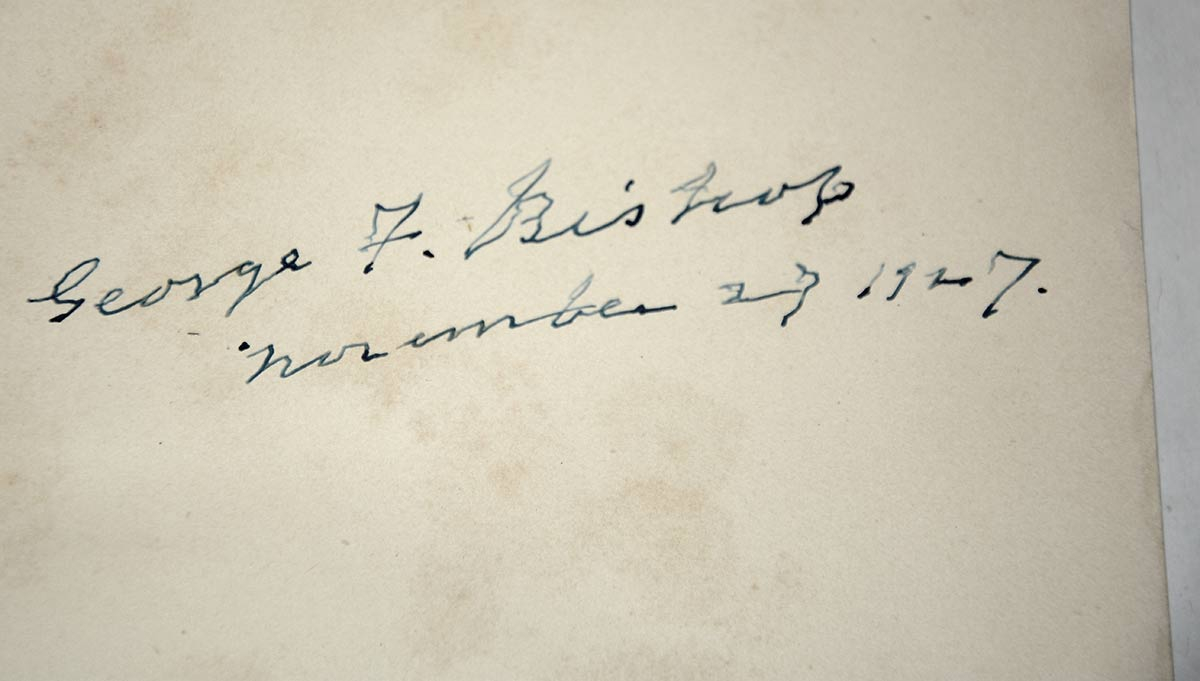 George F. Bishop
November 23 1927.